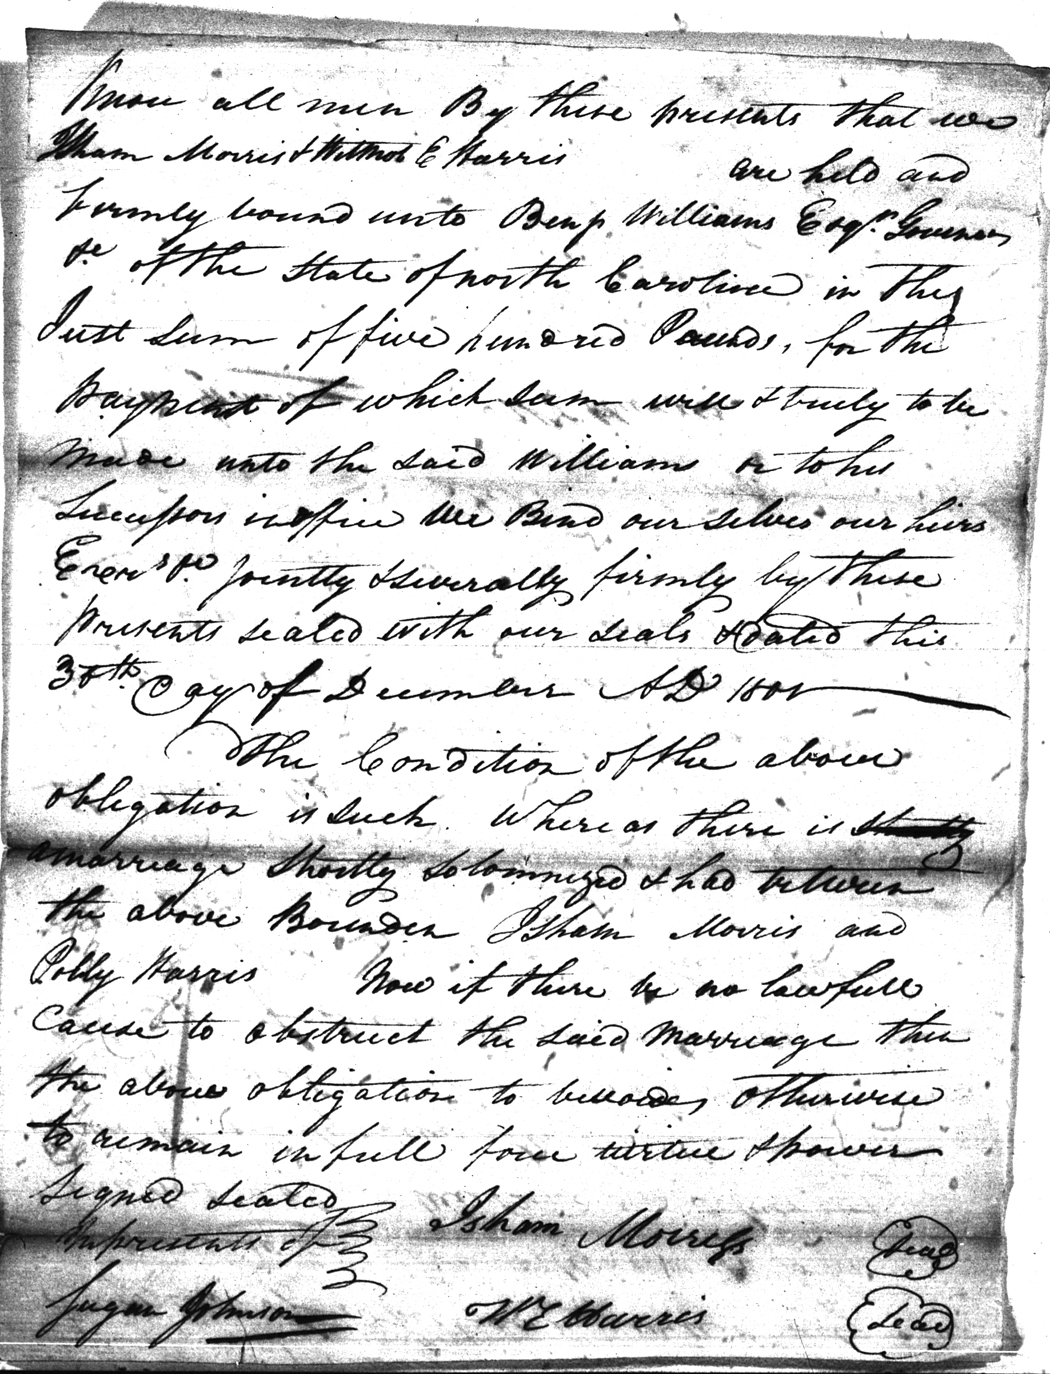 Know all men By these presents that we
Isham Morris & Wilmot E Harris are held and
firmly bound unto Benj. Williams Esqr. Governor
&c of the State of north Carolina in the
Just Sum of five hundred Pounds, for the
payment of which sum well & truly to be
made unto the said Williams or to his
Successors in office We Bind our selves our heirs
Exers &c. jointly & severally firmly by these
presents sealed with our seals & dated this
30th. Day of December AD 1801
The Condition of the above
obligation is such. Whereas there is shortly
a marreage Shortly Solomnized & had between
the above Bounden Isham Morris and
Polly Harris Now if there be no lawfull
Cause to obstruct the said marreage then
the above obligation to be void, otherwise
to remain in full force virtue & power
Signed sealed
In presents of Isham Morriss Seal
Johnson W E Harris Seal